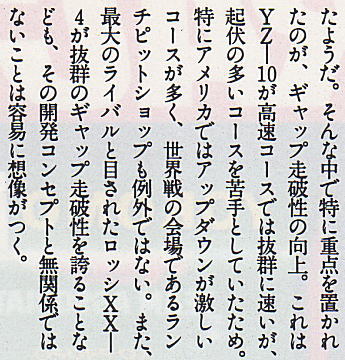 たようだ。そんな中で特に重点を置かれ
たのが、ギャップ走破性の向上。これは
YZ―10が高速コースでは抜群に速いが、
起伏の多いコースを苦手としていたため。
特にアメリカではアップダウンが激しい
コースが多く、世界戦の会場であるラン
チピットショップも例外ではない。また、
最大のライバルと目されたロッシXX―
4が抜群のギャップ走破性を誇ることな
ども、その開発コンセプトと無関係では
ないことは容易に想像がつく。